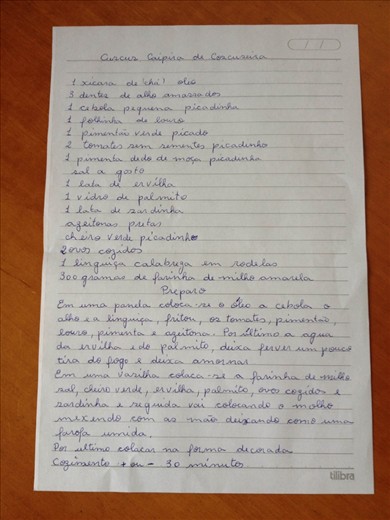 Cuscuz Caipira de Cuscuzeira
1 xícara de "chá" óleo
3 dentes de alho amassados
1 cebola pequena picadinha
1 folhinha de louro
1 pimentão verde picado
2 tomates sem sementes picadinho
1 pimenta dedo de moça picadinha
sal a gosto
1 lata de ervilha
1 vidro de palmito
1 lata de sardinha
azeitonas pretas
cheiro verde picadinho
2 ovos cozidos
1 linguiça calabreza em rodelas
300 gramas de farinha de milho amarela
Preparo
Em uma panela coloca-se o óleo a cebola o
alho e a linguiça, fritou, os tomates, pimentão,
louro, pimenta e azeitona. Por último a agua
da ervilha e do palmito, deixa ferver um pouco
tira do fogo e deixa amornar.
Em uma vazilha coloca-se a farinha de milho
sal, cheiro verde, ervilha, palmito, ovos cozidos e
sardinha e seguida vai colocando o molho
mexendo com as mão deixando como uma
farofa umida.
Por ultimo colocar na forma decorada
Cozimento + ou - 30 minutos
tilibra